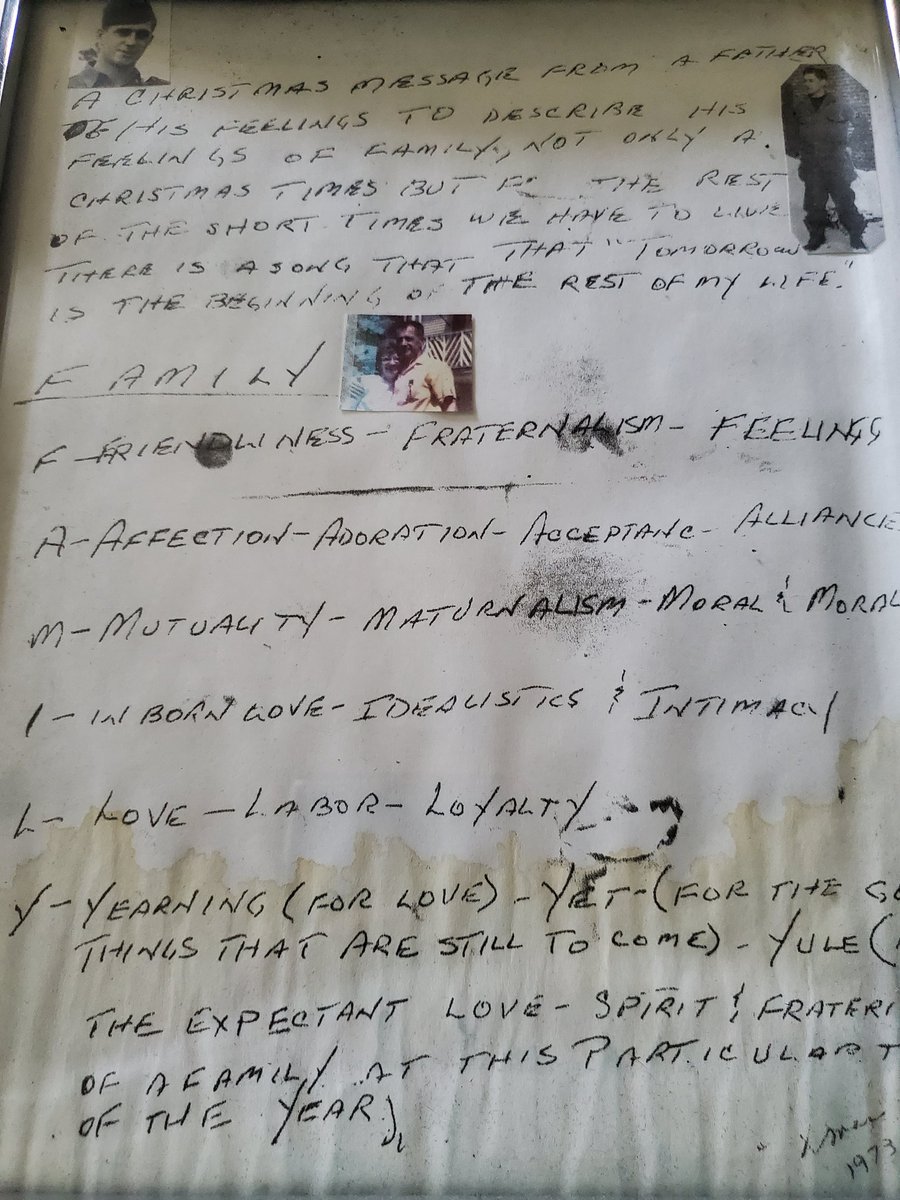 A CHRISTMAS MESSAGE FROM A FATHER
OF HIS FEELINGS TO DESCRIBE HIS
FEELINGS OF FAMILY, NOT ONLY A
CHRISTMAS TIMES BUT THE REST
OF THE SHORT TIMES WE HAVE TO LIVE
THERE IS A SONG THAT THAT "TOMORROW
IS THE BEGINNING OF THE REST OF MY LIFE."
FAMILY
F-FRIENDLINESS- FRATERNALISM- FEELINGS
A-AFFECTION-ADORATION- ACCEPTANC- ALLIANCE
M-MUTUALITY- MATURNALISM-MORAL & MORAL
I-INBORN LOVE-IDEALISTICS & INTIMACY
L- LOVE-LABOR-LOYALTY
Y-YEARNING (FOR LOVE)-YET-(FOR THE
THINGS THAT ARE STILL TO COME)-YULE(
THE EXPECTANT LOVE-SPIRIT &
OF A FAMILY AT THIS PARTICULAR
OF THE YEAR)
XMAS
1973